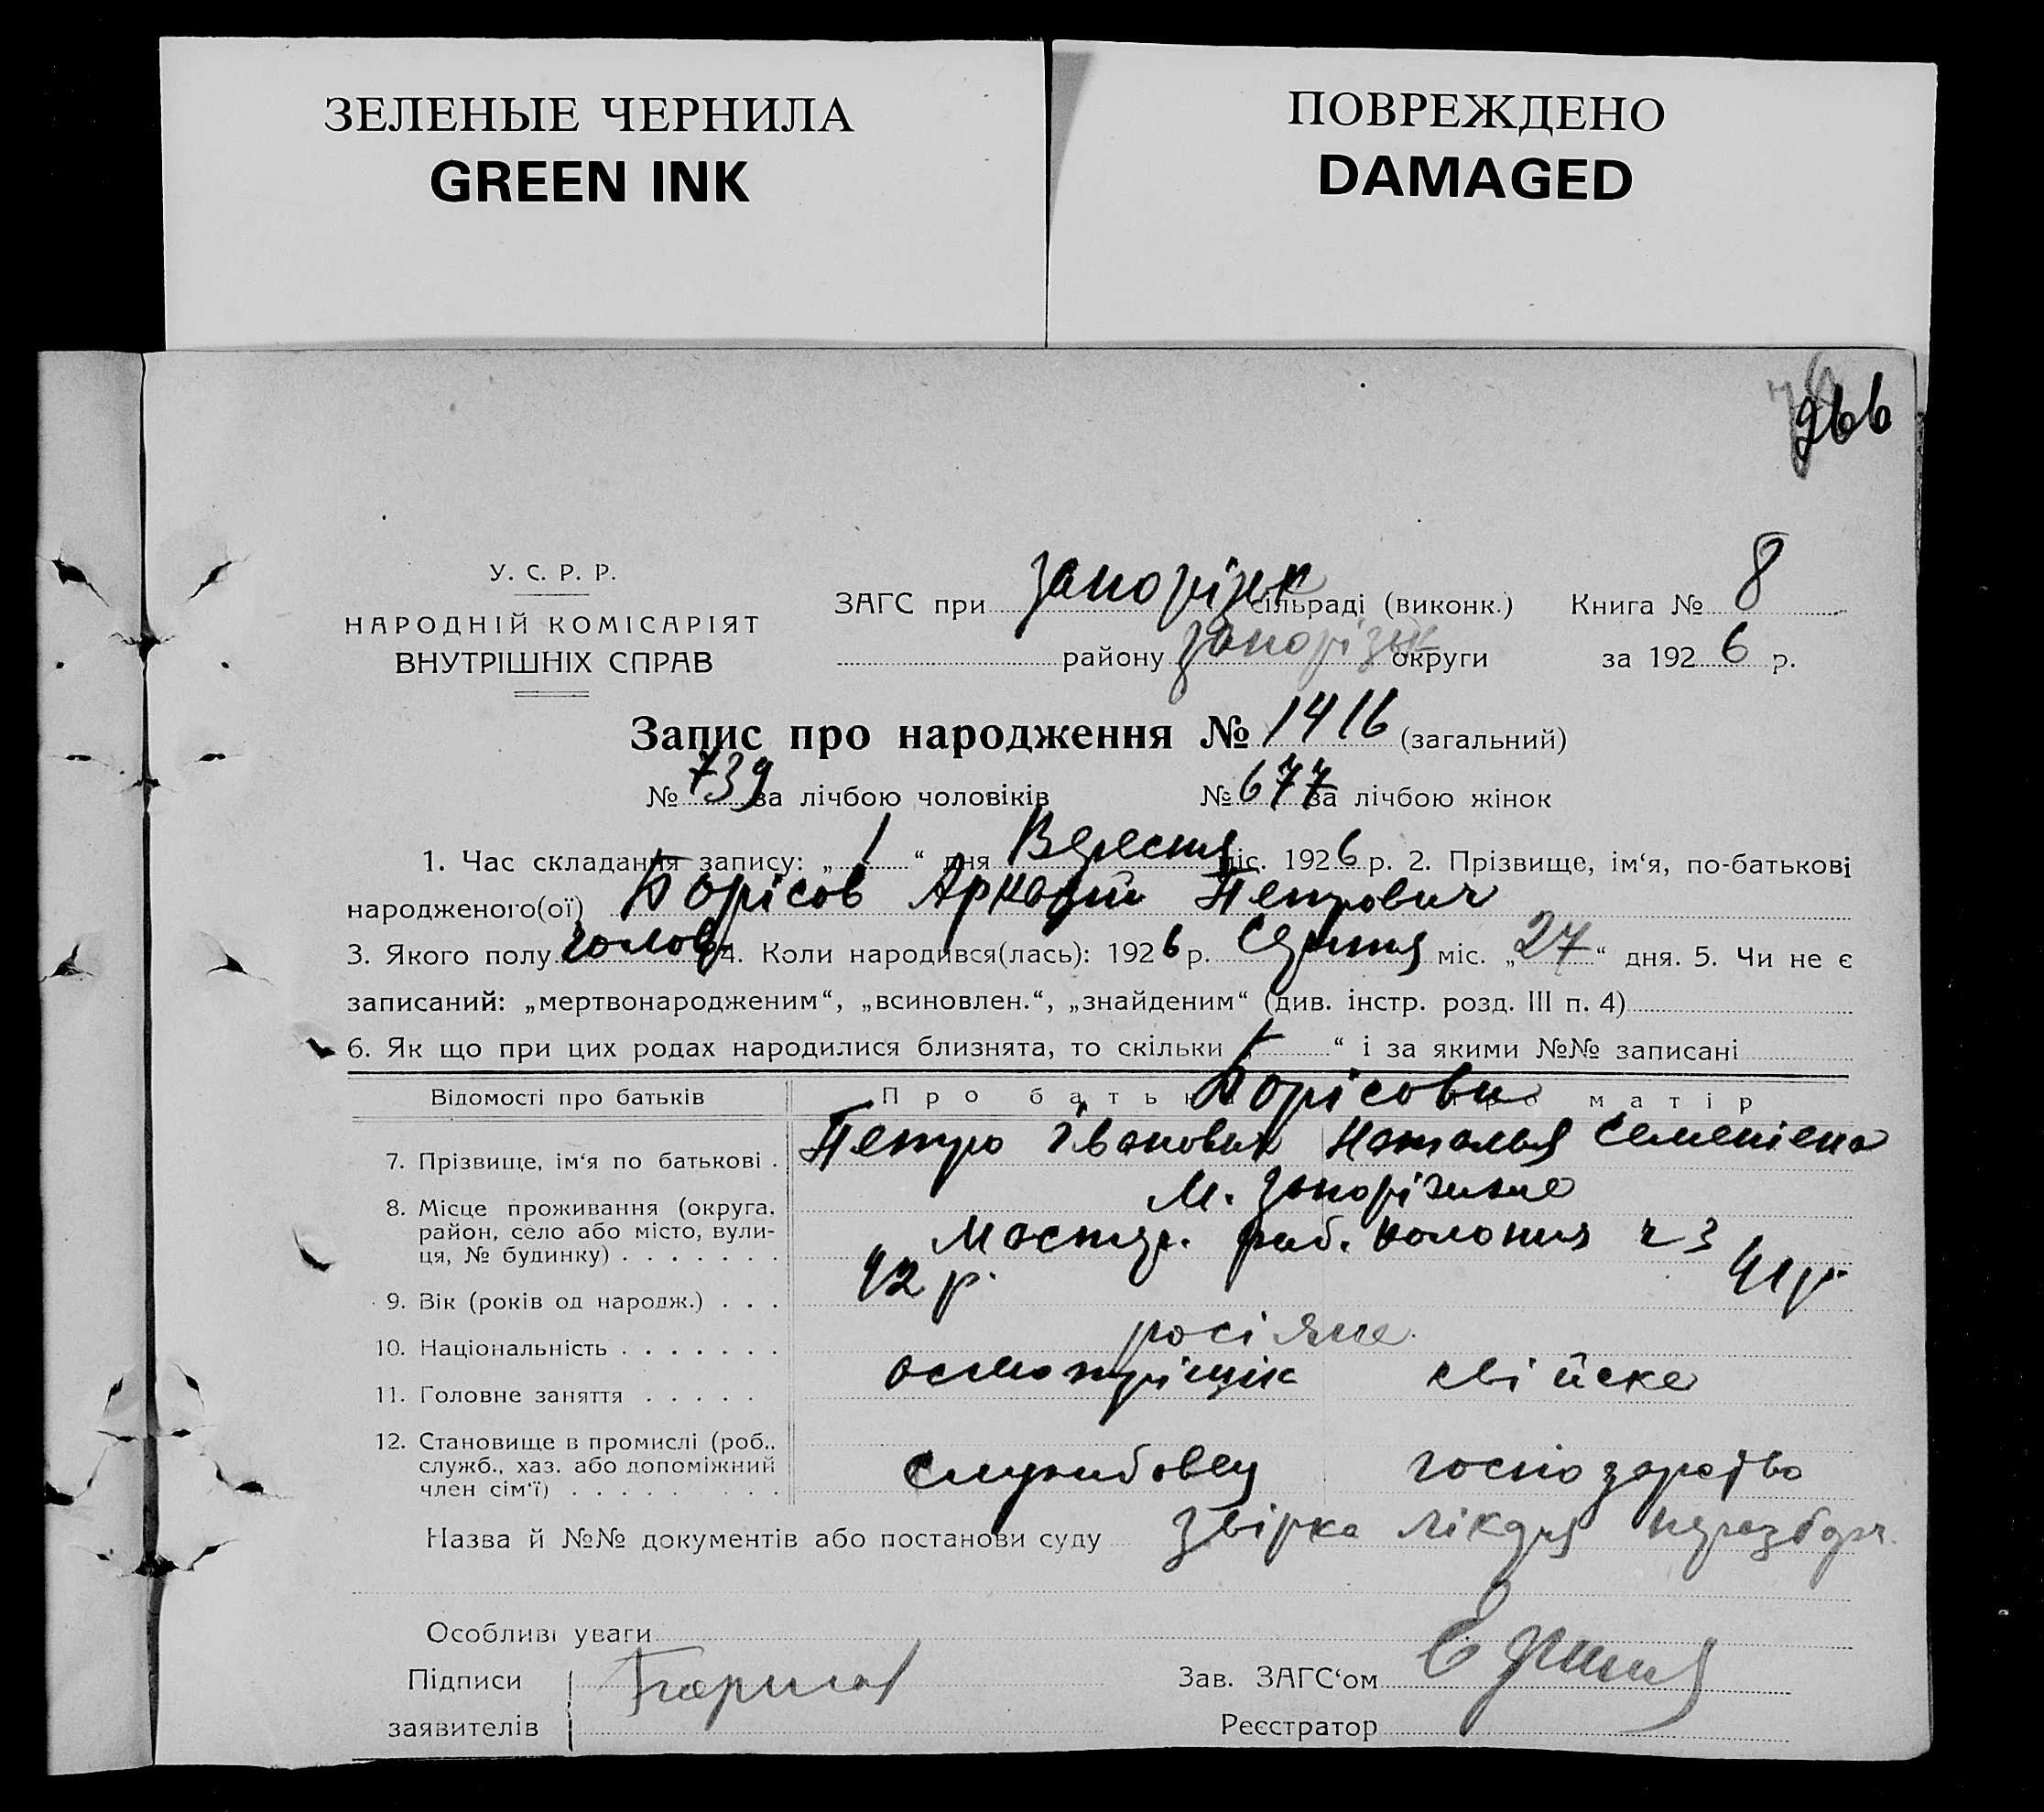 ЗЕЛЕНЫЕ ЧЕРНИЛА
GREEN INK
ПОВРЕЖДЕНО
DAMAGED
266
У. С. Р. Р.
НАРОДНІЙ КОМІСАРІЯТ
ВНУТРІШНІХ СПРАВ
ЗАГС при Запорізьк сільраді (виконк.) Книга № 8
району Запорізьк округи за 1926 р.
Запис про народження № 1416 (загальний)
№ 739 за лічбою чоловіків № 677 за лічбою жінок
1. Час складання запису: „ 1 “ дня Вересня міс. 1926 р. 2. Прізвище, ім‘я, по-батькові
народженого(ої) Борісов Аркадий Петрович
3. Якого полу чолов 4. Коли народився(лась): 1926 р. Серпня міс. „ 27 “ дня. 5. Чи не є
записаний: „мертвонародженим“, „всиновлен.“, „знайденим“ (див. інстр. розд. III п. 4)
6. Як що при цих родах народилися близнята, то скільки „ “ і за якими №№ записані
Відомості про батьків Про батьк про матір
Борісови
7. Прізвище, ім‘я по батькові . Петро Іванович Наталья Семенівна
8. Місце проживання (округа, район, село або місто, вули-ця, № будинку) . . . . . . . м. Запоріжжє
раб. колония ч 3
9. Вік (років од народж.) . . . 42 р. 41 р.
10. Національність . . . . . . . росіяне
11. Головне заняття . . . . . осмотріщик свійске
12. Становище в промислі (роб.,
служб., хаз. або допоміжний
член сім‘ї) . . . . . . . . службовец господарство
Назва й №№ документів або постанови суду лікаря
Особливі уваги
Підписи
заявителів
Зав. ЗАГС‘ом
Реєстратор